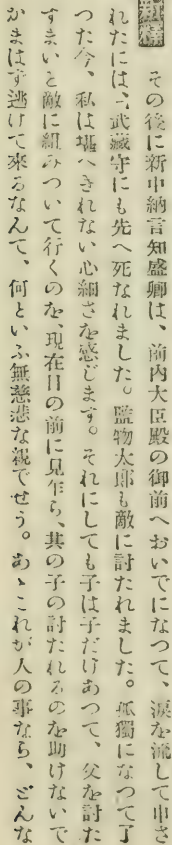 その後に新中納言知盛卿は、前内大臣殿の御前へおいでになつて、涙を流して申さ
れたには、「武藏守にも先へ死なれました。監物太郎も敵に討たれました。孤獨になつて了
つた今、私は堪へきれない心細さを感じます。それにしても子は子だけあつて、父を討た
すまいと敵に組みついて行くのを、現在目の前に見乍ら、其の子の討たれるのを助けないで
かまはず逃げて來るなんて、何といふ無慈悲な親でせう。あゝこれが人の事なら、どんな